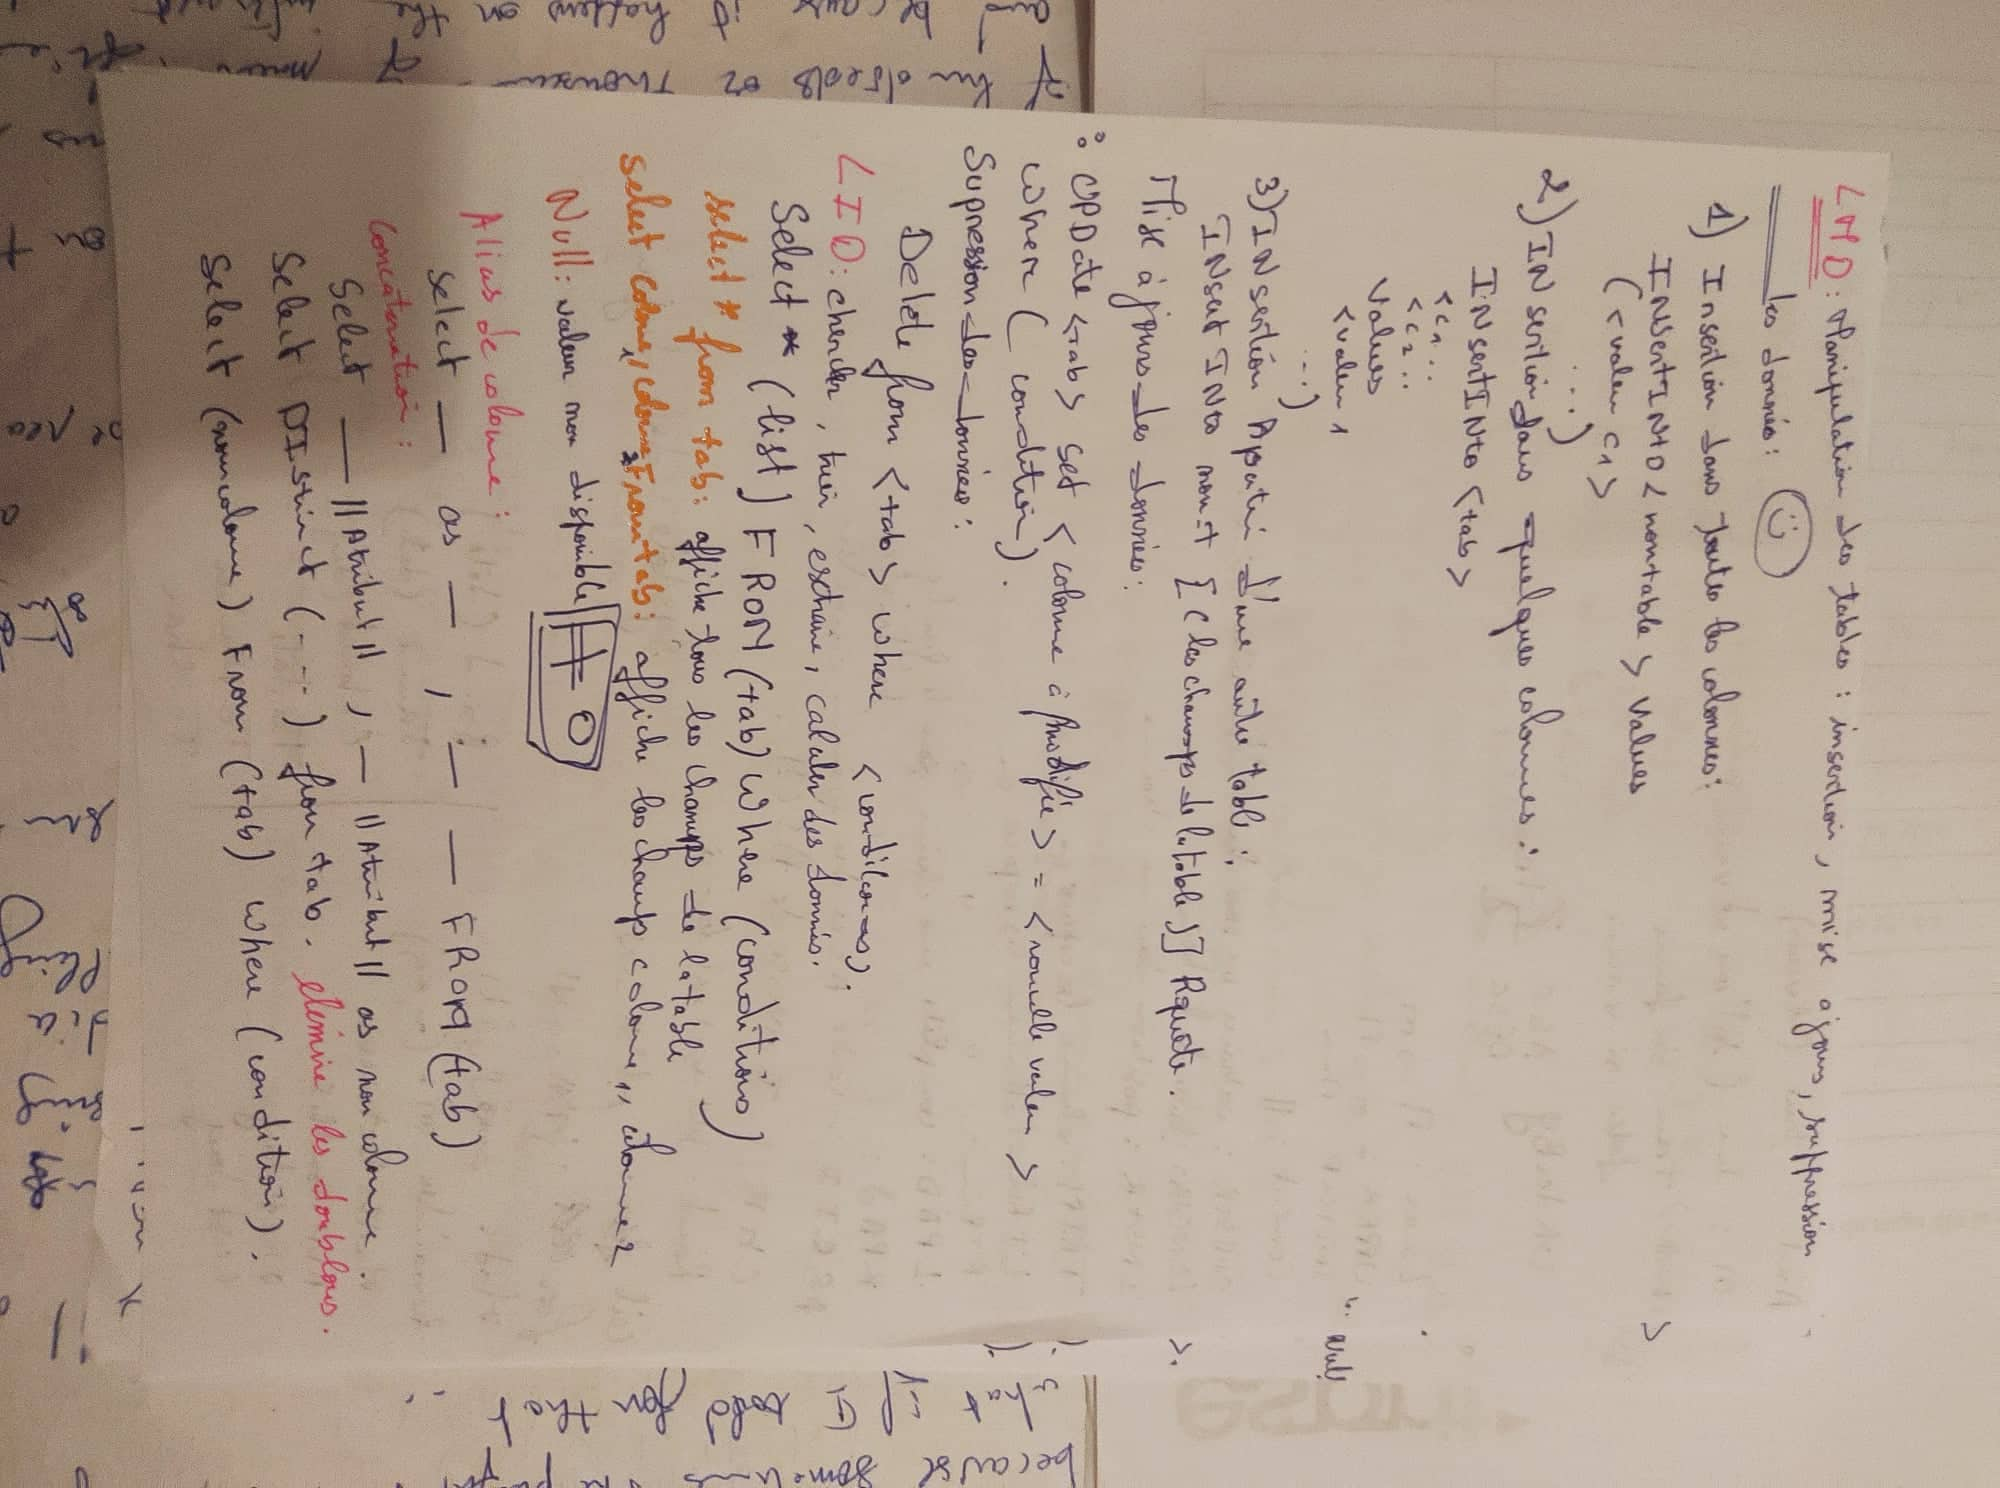 LMD: Manipulation des tables: insertion, mise à jours, suppression
les donnés:
1) Insertion dans toutes les colonnes:
INSert INtO < nomtable > values
(<valeur c1>
...)
2) INsertion dans quelques colonnes:
INsert INto <tab>
<c1 ..
<c2 ..
values
<valeur 1
...)
3) INsertion Apartir d'une autre table:
INsert INto nom.t [(les champs de la table)] Requete.
Mise à jours des données:
: UPDate <tab> set < colonne à Modifié > = <nouvelle valeur>
where ( condition).
Supression des données:
Delete from <tab> where <conditions>.
LID: chercher, trier, extraire, calculer des donnés.
Select * (list) FROM (tab) where (conditions)
select * from tab: affiche tous les champs de la table
select colonne1, colonne2 From tab: affiche les champs colonne1, colonne2
Null: valeur non disponible ≠ 0
Alias de colonne:
select — as — , — — FROM (tab)
Concatenation:
Select — ||Attribut|| , — ||Attribut|| as nom colonne.
Select DIstinct (...) from tab. elimine les doublons.
Select (nomcolonne) From (tab) where (condition).